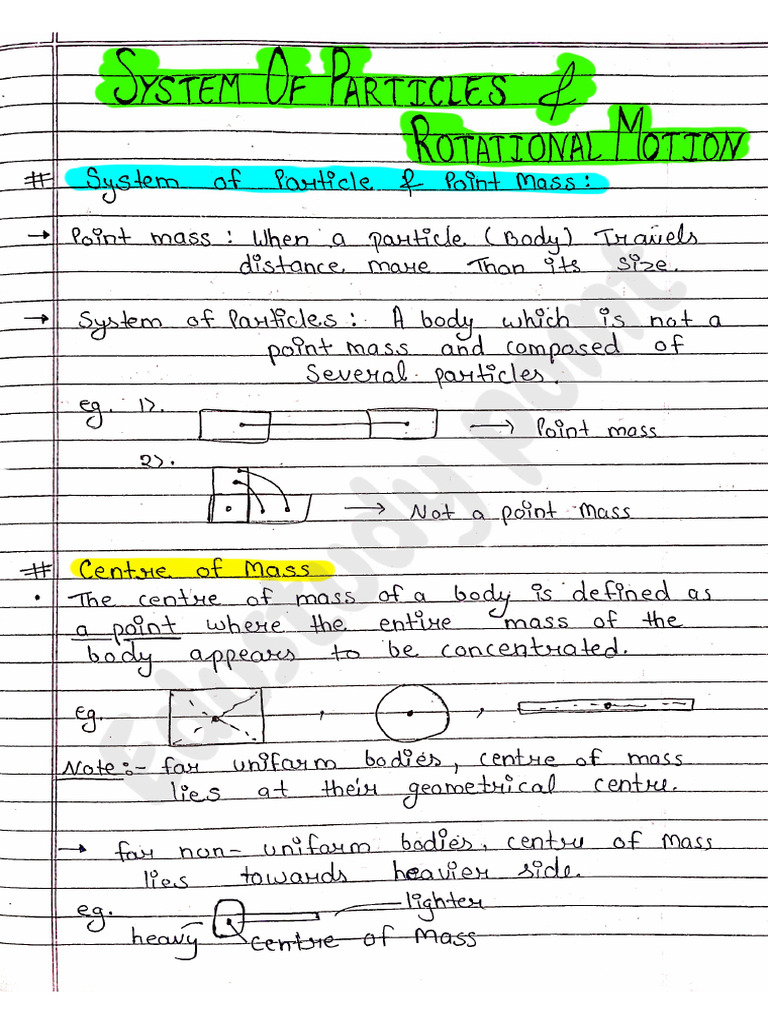 SYSTEM OF PARTICLES &
ROTATIONAL MOTION
# System of Particle & Point Mass :
→ Point mass : When a particle (Body) Travels
distance more Than its size.
→ System of Particles : A body which is not a
point mass and composed of
several particles.
eg. 1). → Point mass
2). → Not a point mass
# Centre of Mass
• The centre of mass of a body is defined as
a point where the entire mass of the
body appears to be concentrated.
eg. , ,
Note :- for uniform bodies, centre of mass
lies at their geometrical centre.
→ for non-uniform bodies, centre of mass
lies towards heavier side.
eg. lighter
heavy Centre of Mass
Edustudy point